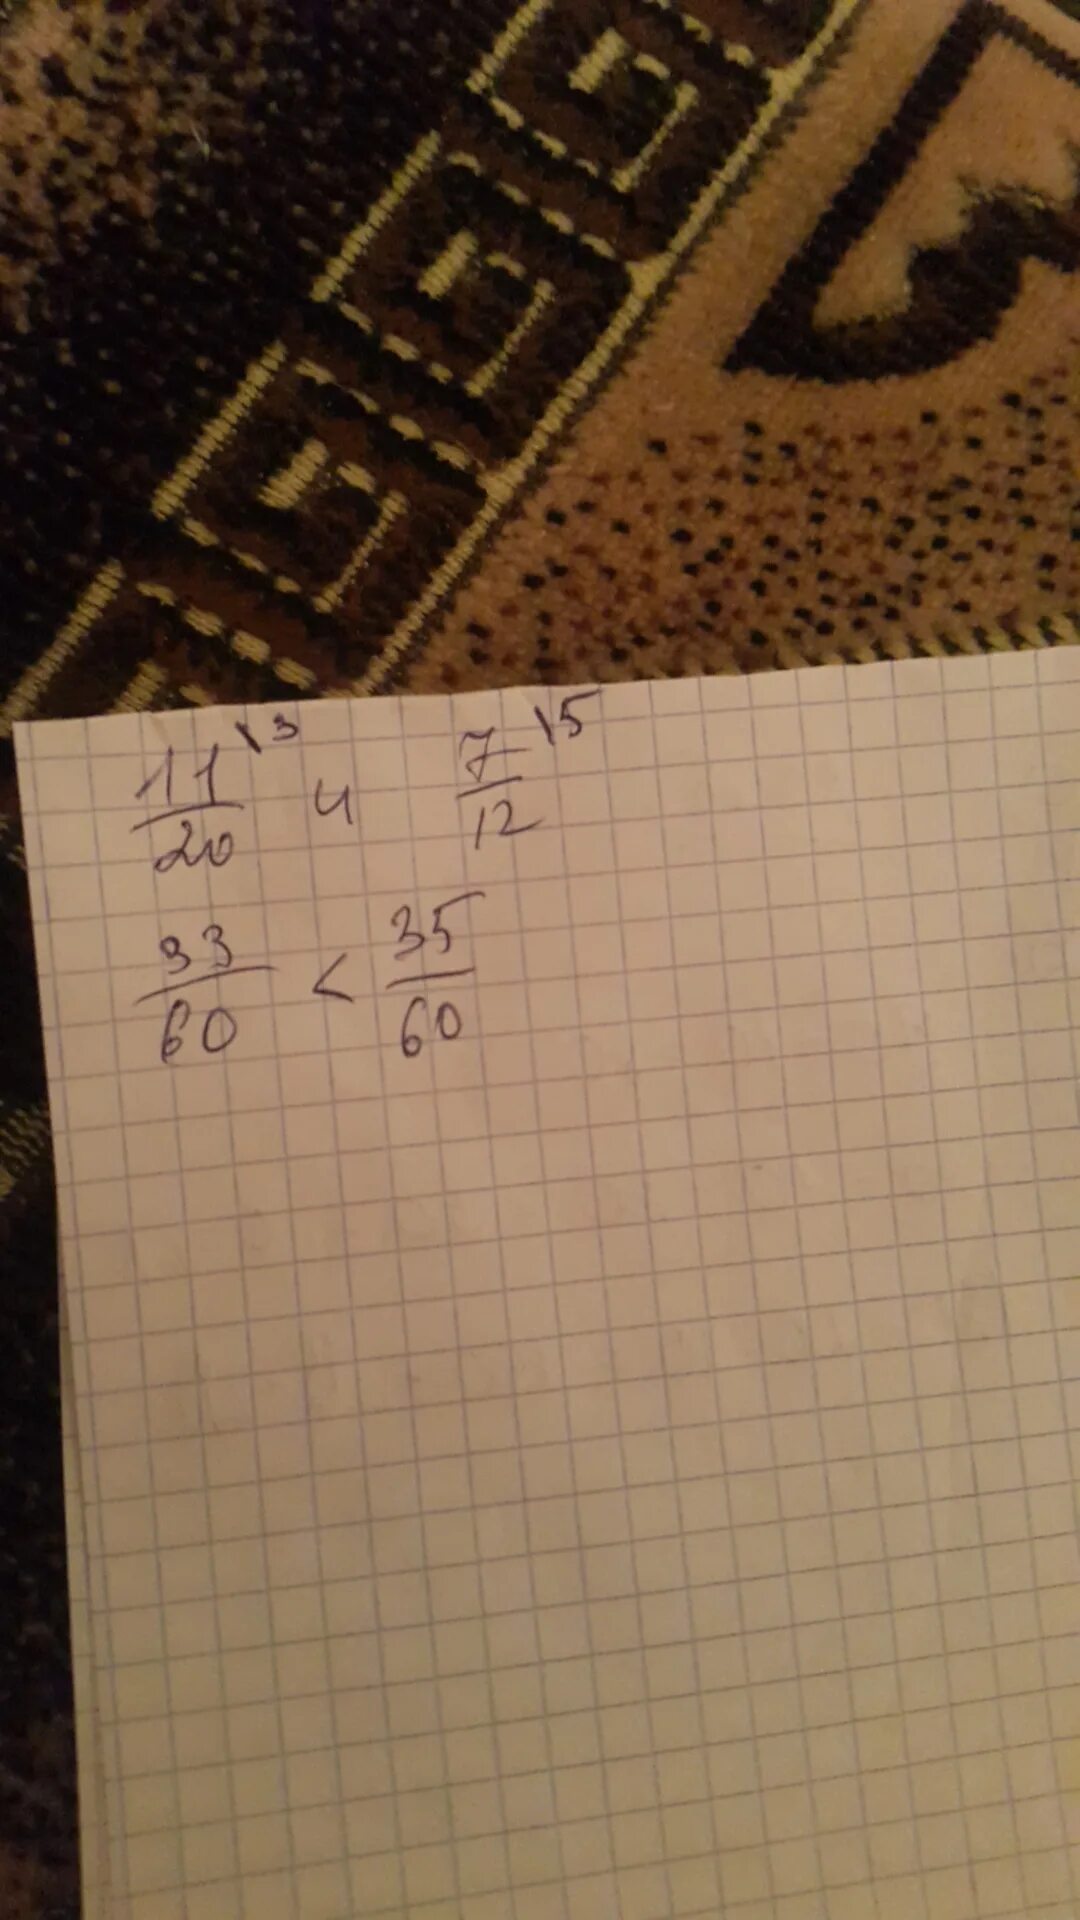 11/20 \3 и 7/12 \5
33/60 < 35/60